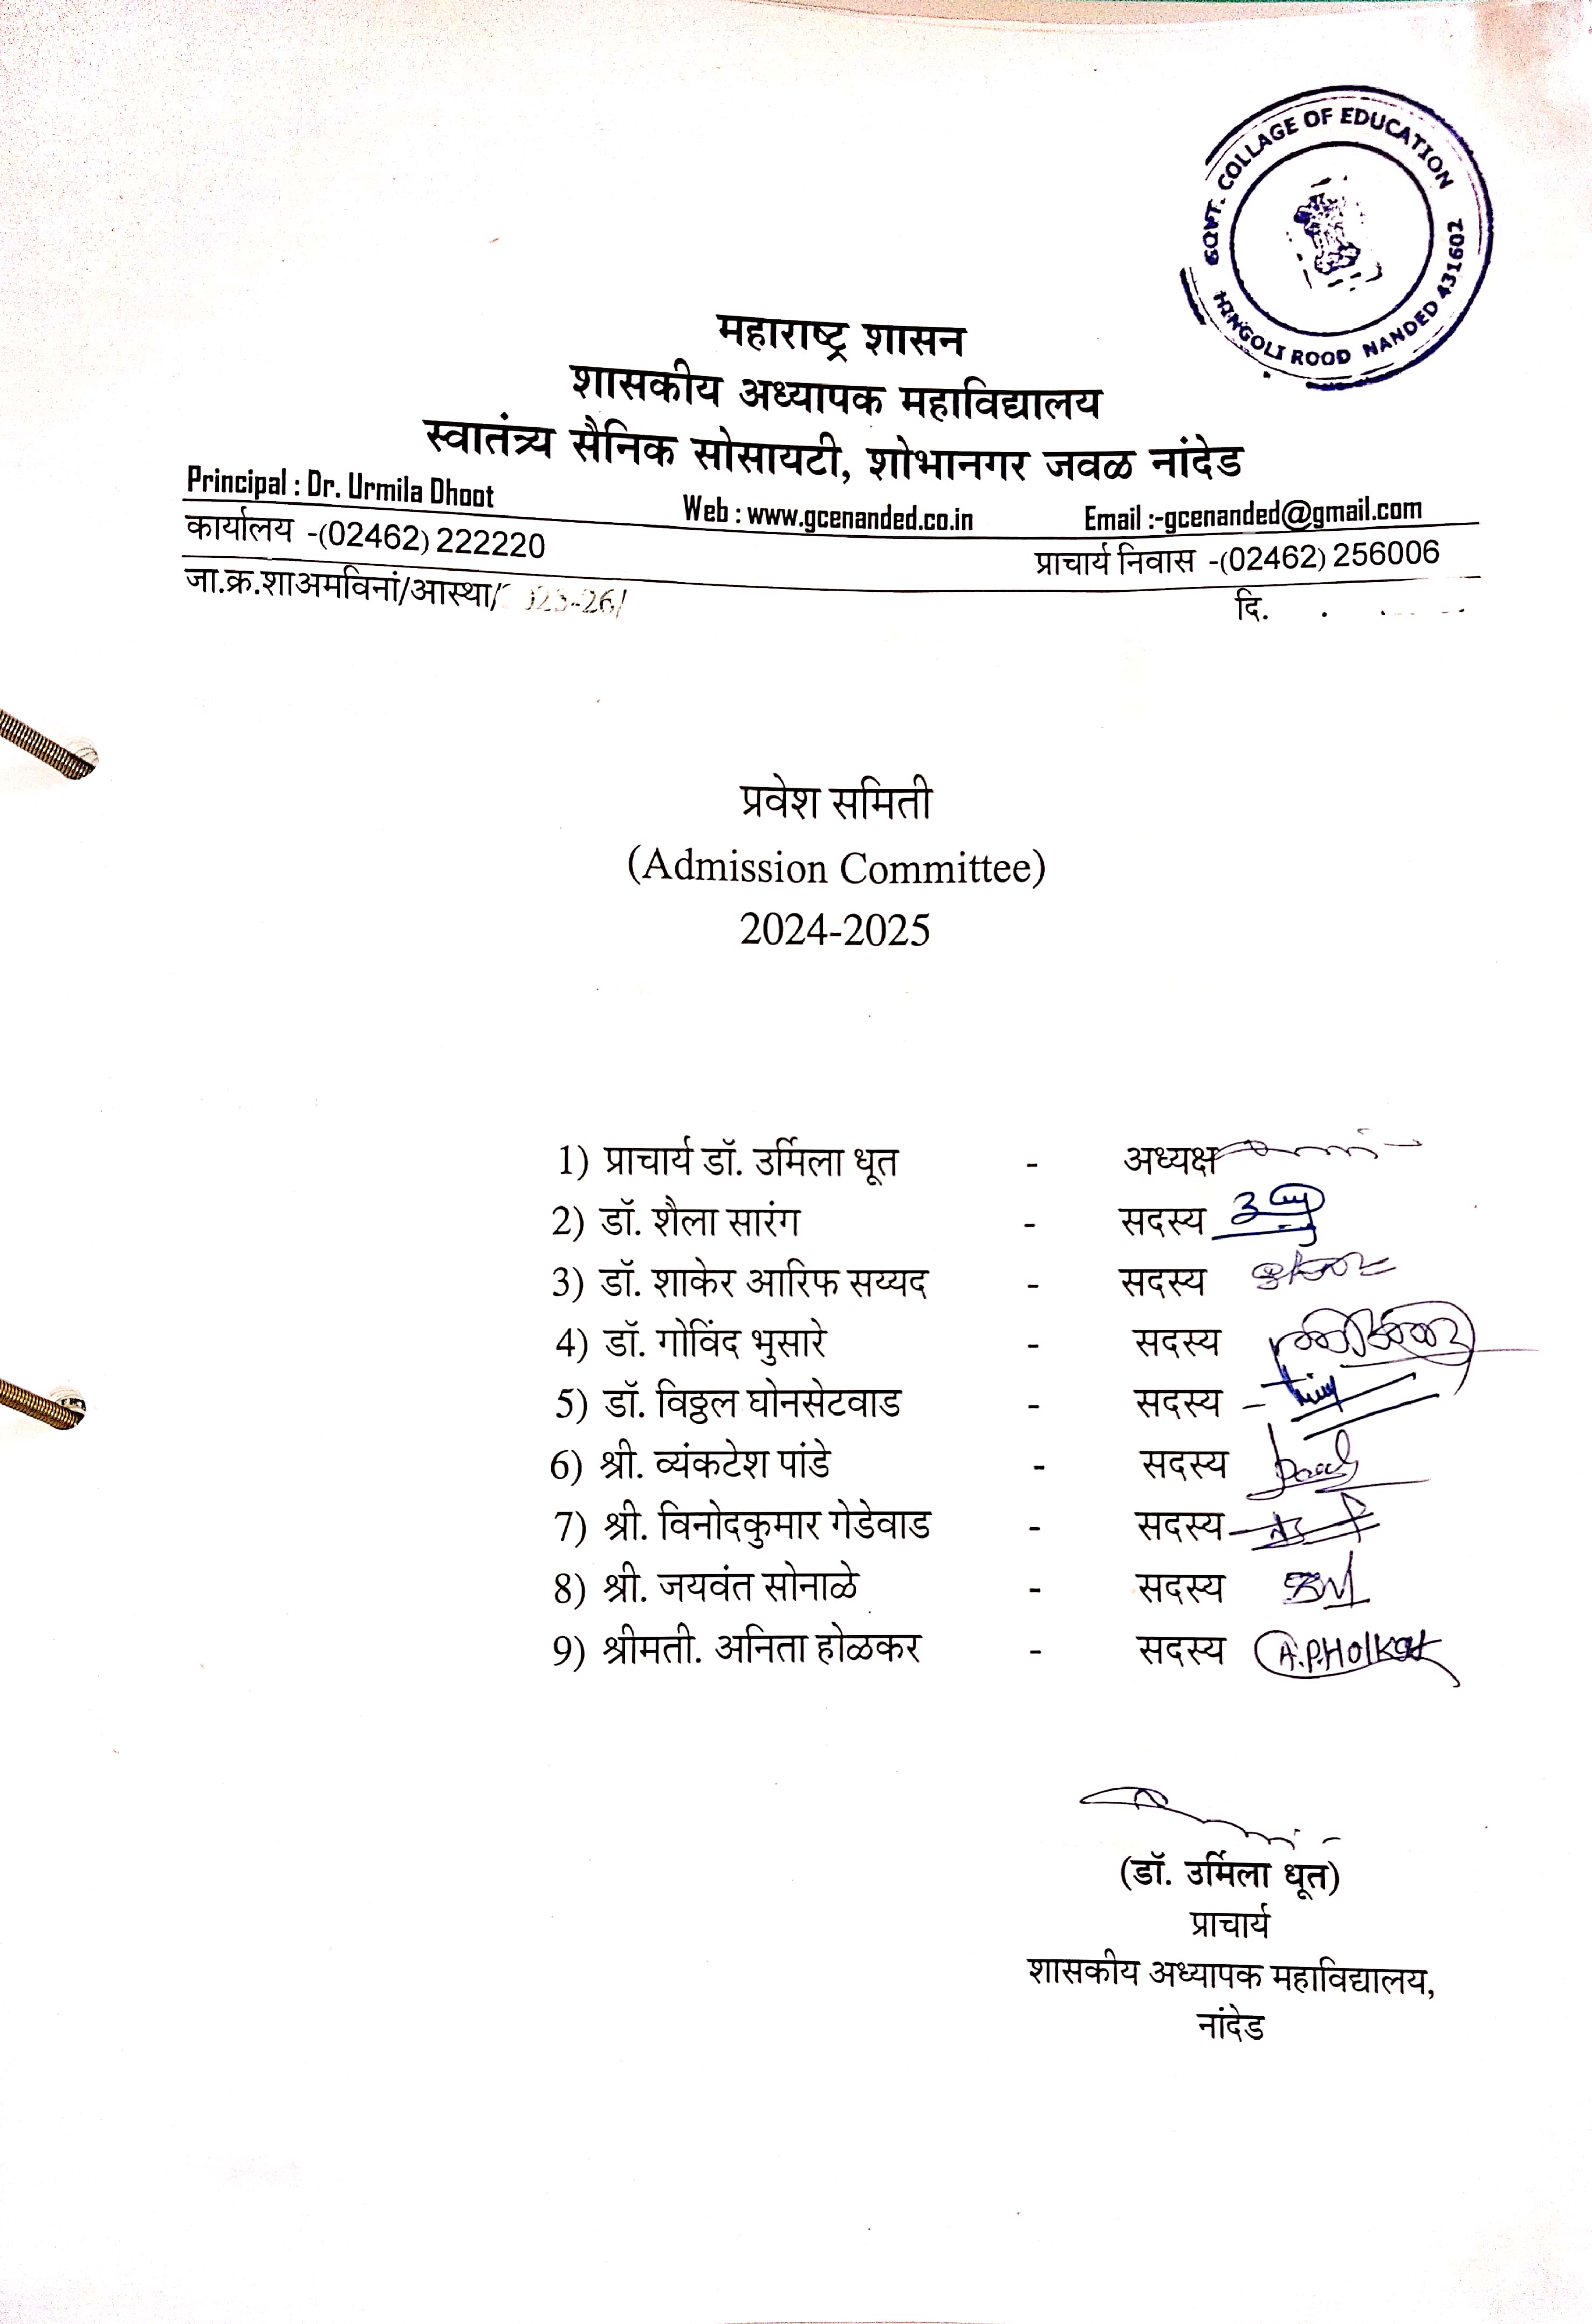 GOVT. COLLAGE OF EDUCATION
HINGOLI ROOD NANDED 431602
महाराष्ट्र शासन
शासकीय अध्यापक महाविद्यालय
स्वातंत्र्य सैनिक सोसायटी, शोभानगर जवळ नांदेड
Principal : Dr. Urmila Dhoot Web : www.gcenanded.co.in Email :-gcenanded@gmail.com
कार्यालय -(02462) 222220 प्राचार्य निवास -(02462) 256006
जा.क्र.शाअमविनां/आस्था/ दि.
प्रवेश समिती
(Admission Committee)
2024-2025
1) प्राचार्य डॉ. उर्मिला धूत - अध्यक्ष
2) डॉ. शैला सारंग - सदस्य
3) डॉ. शाकेर आरिफ सय्यद - सदस्य
4) डॉ. गोविंद भुसारे - सदस्य
5) डॉ. विठ्ठल घोनसेटवाड - सदस्य
6) श्री. व्यंकटेश पांडे - सदस्य
7) श्री. विनोदकुमार गेडेवाड - सदस्य
8) श्री. जयवंत सोनाळे - सदस्य
9) श्रीमती. अनिता होळकर - सदस्य A.P.Holkar
(डॉ. उर्मिला धूत)
प्राचार्य
शासकीय अध्यापक महाविद्यालय,
नांदेड